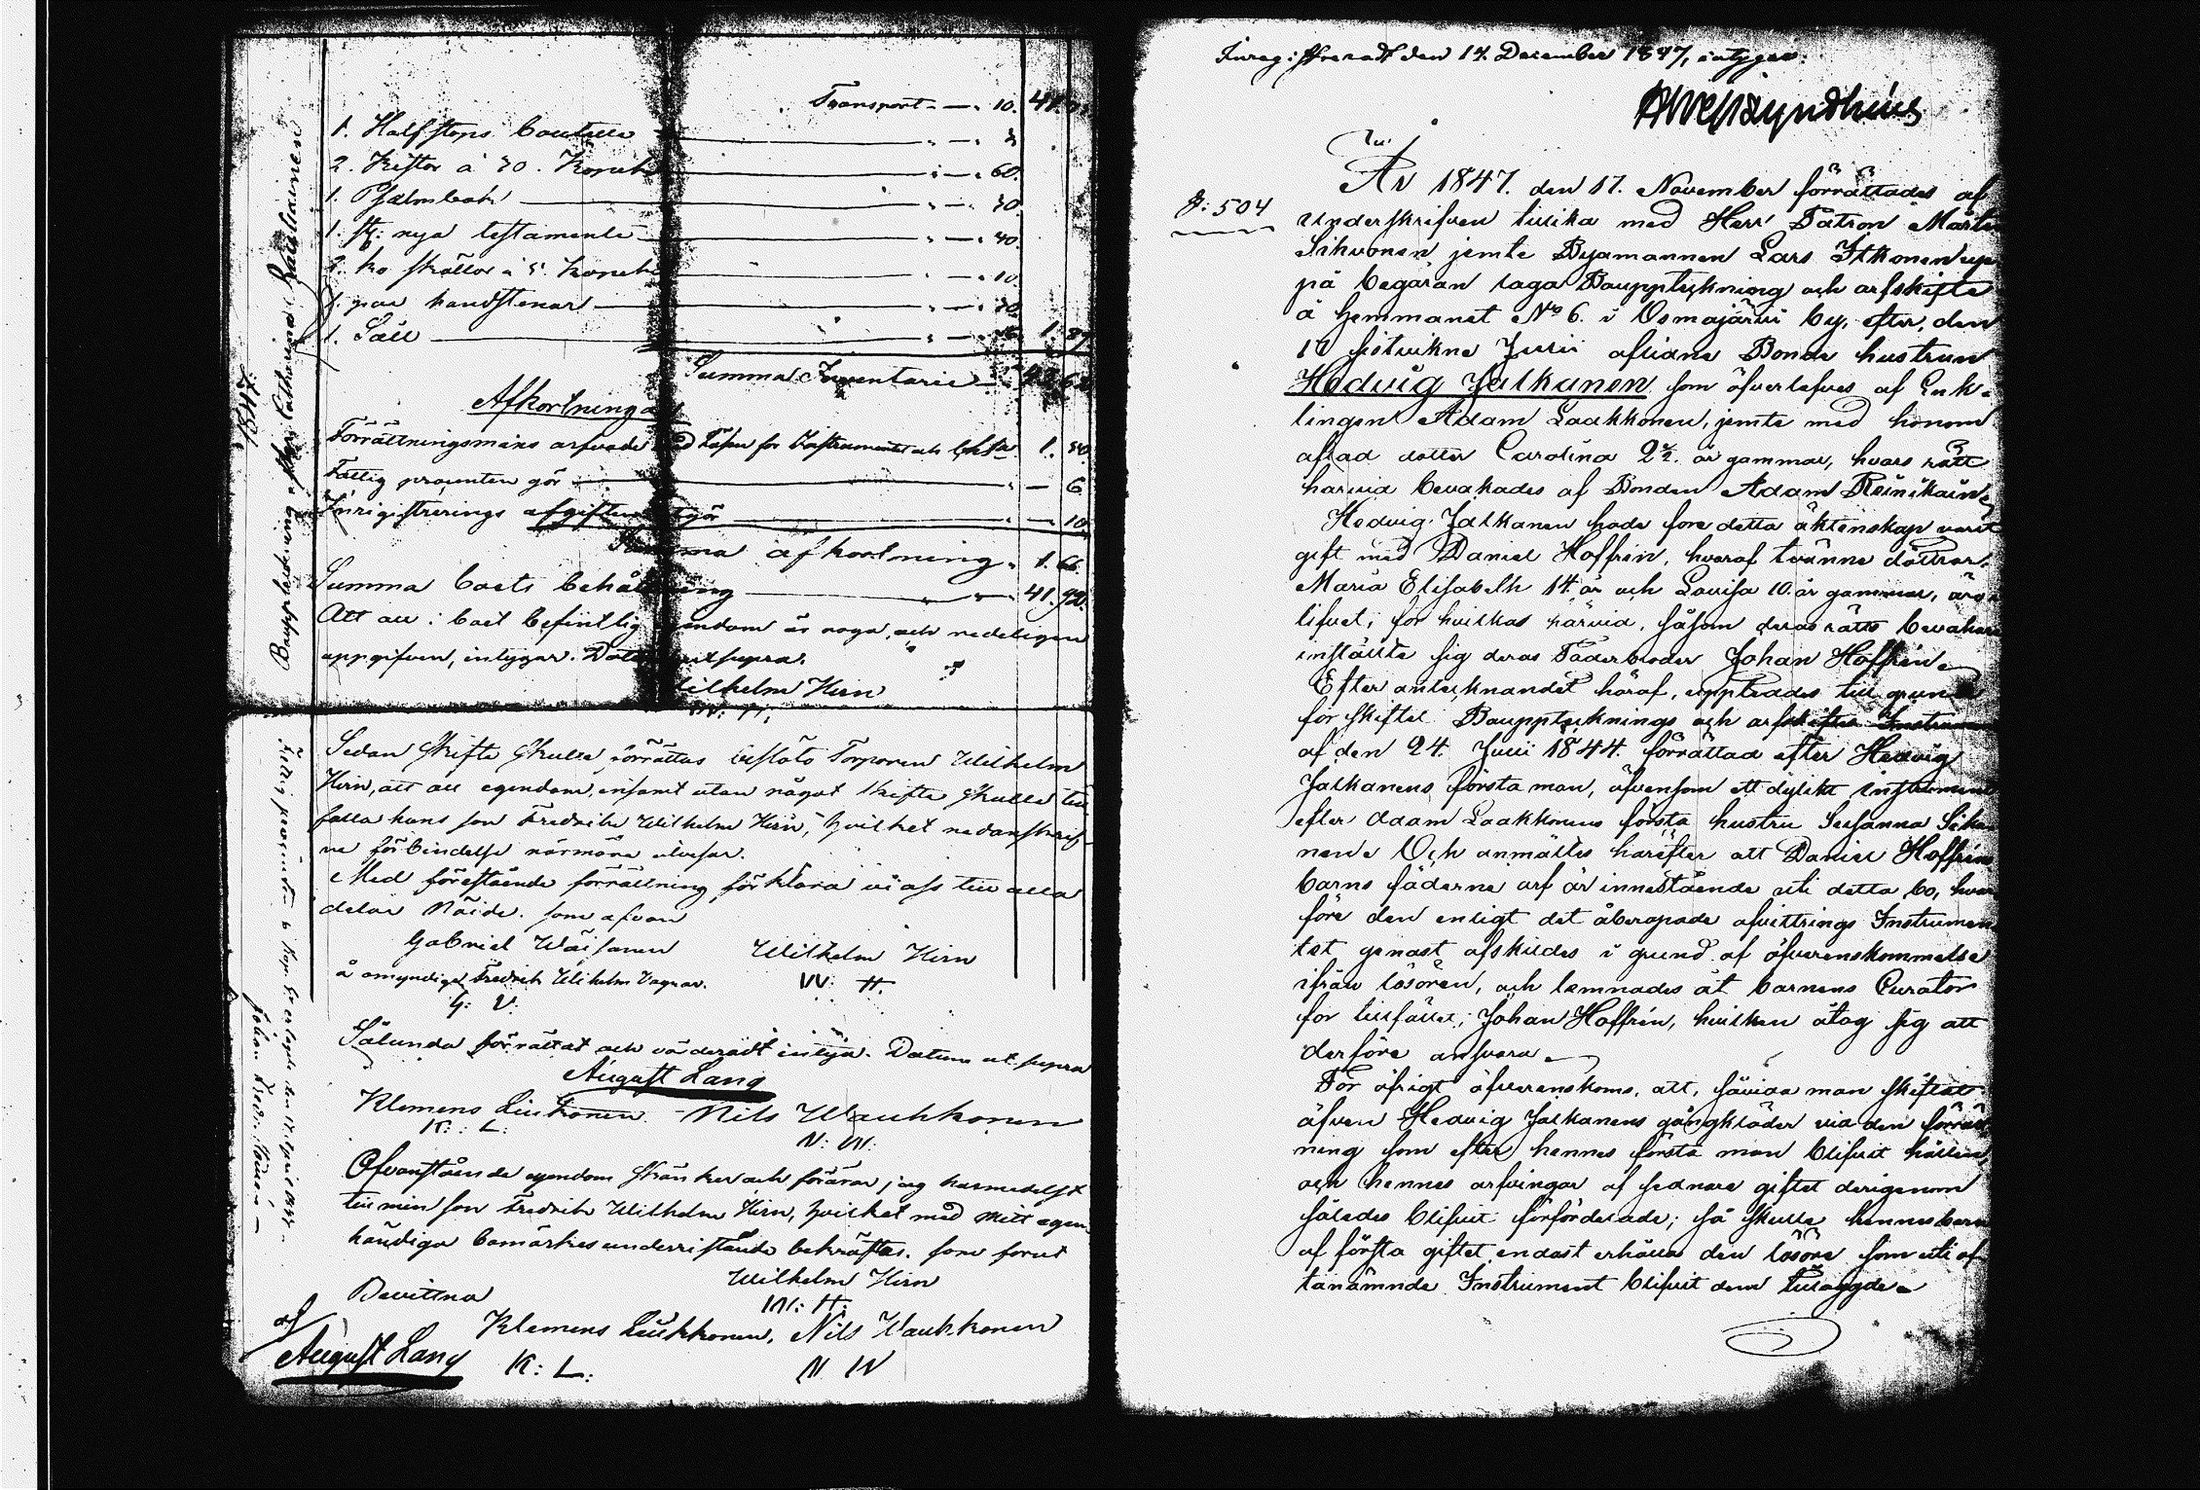 Transport - — " 10. 41.
1. Halfstops bouteille " — " 3
2. Kistor à 30. Kopek " — " 60.
1. Psalmbok " — " 30.
1. st. nya testamente " — " 40.
2. ko skällor à 5. Kopek " — " 10.
1. par handstenar " — "
1. Såll " — " 1. 87
Summa Inventarie
Afkortningar
Förrättningsmäns arfvode för Instrumentet och 1. 50.
Fattig procenten gör " — 6
Inrigistrerings afgiften gör " — 10
Summa afkortning. 1. 66.
Summa boets behållning " — " 41. 92.
Att all i boet befintlig egendom är noga, och redeligen
uppgifven, intygar. Datum ut supra.
Wilhelm Hirn
W: H:
Sedan skifte skulle förrättas besköts Torparen Wilhelm
Hirn, att all egendom, insamt utan något skifte skulle till
falla hans son Fredrik Wilhelm Hirn, hvilket nedanskrif-
ne förbindelse närmare utvisar.
Med förestående förrättning förklara vi oss till alla
delar Nöjde. som ofvan
Gabriel Wäisänen Wilhelm Hirn
å omyndiga Fredrik Wilhelm Vägnar. W: H.
G: V:
Sålunda förrättat och värderadt intyga. Datum ut supra
August Lang
Klemens Liukkonen - Nils Waukkonen
K: L: N: W:
Ofvanstående egendom skänker och förärar jag harmedelst
till min son Fredrik Wilhelm Hirn, hvilket med mitt egen
händiga bomärkes underristande bekräftas. som förut
Wilhelm Hirn
W: H:
Bevittna
Klemens Liukkonen, Nils Waukkonen
K: L: N W
af
August Lang
Bouppteckning efter Katharina
1847.
Fattig procenten 6 Kop. Sr erlagde den 17. April 1848.
Johan Fredr.
Inregistreradt den 14. December 1847, intygar:
№: 504
År 1847. den 17. November förrättades af
underskrifven tillika med Herr Patron Mårten
Sihvonen jemte Byamannen Lars Itkonen upp
på begäran laga Bouppteckning och arfskifte
å hemmanet No 6. i Osmajärvi by, efter, den
sistvikne Julii aflidne Bonde hustrun
Hedvig Jalkanen som öfverlefves af Enk-
lingen Adam Laakkonen, jemte med honom
aflad dotter Carolina 2½ år gammal, hvars rätt
härvid bevakades af Bonden Adam Reinikain
Hedvig Jalkanen hade före detta äktenskap varit
gift med Daniel Hoffrén, hvaraf tvänne döttrar,
Maria Elisabeth 14 år och Lovisa 10. år gammal, äro i
lifvet; för hvilkas härvid, såsom deras rätts bevakare
inställte sig deras Faderbroder Johan Hoffrén
Efter antecknandet häraf, upptades till grund
för skiftet Bouppteknings och arfskiftes Instrument
af den 24. Julii 1844. förrättad efter Hedvig
Jalkanens första man, äfvensom ett dylikt instrument
efter Adam Laakkonens första hustru Susanna
Och anmältes härefter att Daniel Hoffréns
barns fäderne arf är innestående uti detta bo, hvar
före den enligt det åberopade afvittrings Instrumen
tet genast afskildes i grund af öfverenskommelse
ifrån lösören, och lemnades åt barnens Curator
för tillfället; Johan Hoffrén, hvilken åtog sig att
derföre ansvara
För öfrigt öfverenskoms, att, såvida man skiftat
äfven Hedvig Jalkanens gångkläder vid den förrätt
ning som efter hennes första man blifvit hållen,
och hennes arfvingar af sednare giftet derigenom
således blifvit förfördelade; så skulle hennes barn
af första giftet endast erhålla den lösöre som uti of-
tanämnde Instrument blifvit dem tillagde